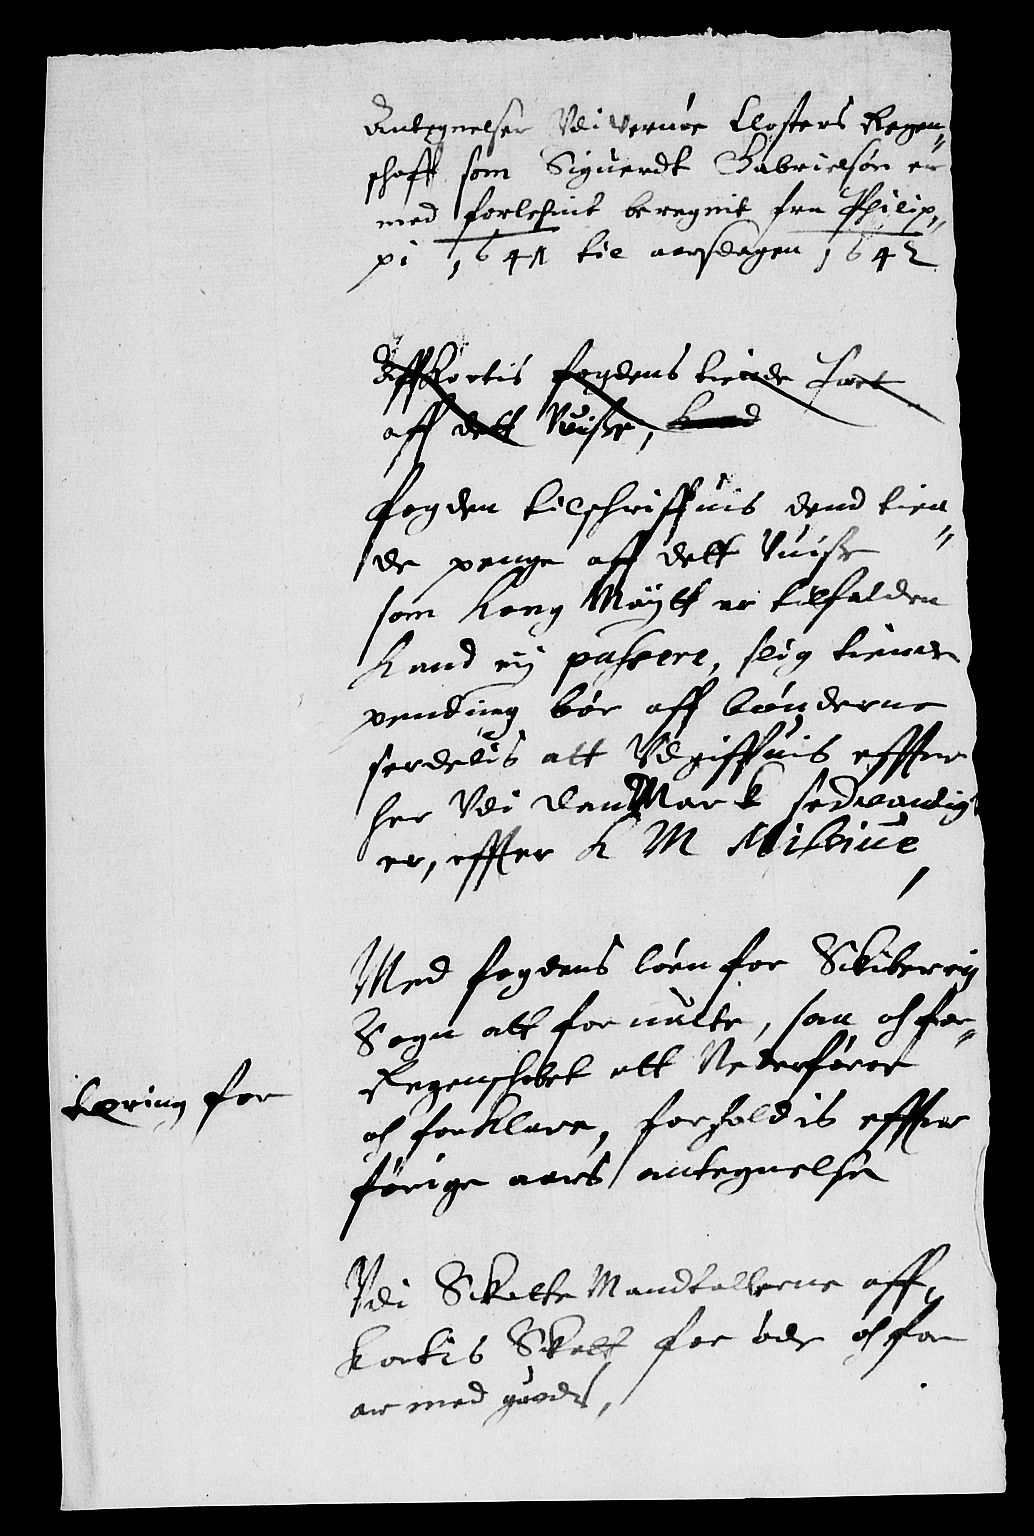 Antegnelser Vdi Vernøe Closters Regen„
schaff som Siguerdt Gabrielsøn er
med forlehnit beregnit fra Philip„
pi 1641 til aarsdagen 1642
Affkortis fogdens tiende Part
aff dett Visse, kand
fogden tilschriffuis dend tien„
de penge aff dett Visse
som Kong Maytt er tilfalden
kand eij passere, slig tiende
pending bør aff bønderne
serdelis att Vdgiffuis effter
her Vdi Danmark sedvanlig
er, effter K M Missiue,
Med fogdens løen for Skibereig
Sogn att formelte, saa och for„
Regenschabet att Nederføre
och forklare, forholdis effter
forige aars antegnelse
tøring for
Vdi Skatte Mandtallerne aff„
kortis Skatt for øde och for
armed guods,